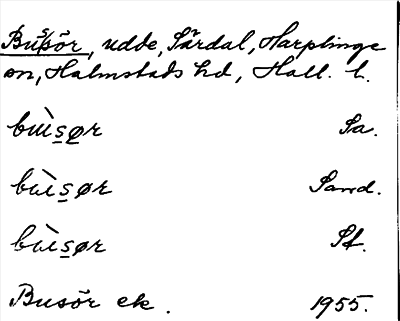 Bussör, udde, Särdal, Harplinge
sn, Halmstads hd, Hall. l.
bùsør Sa.
bùsør Sand.
bùsør St.
Busör ek. 1955.